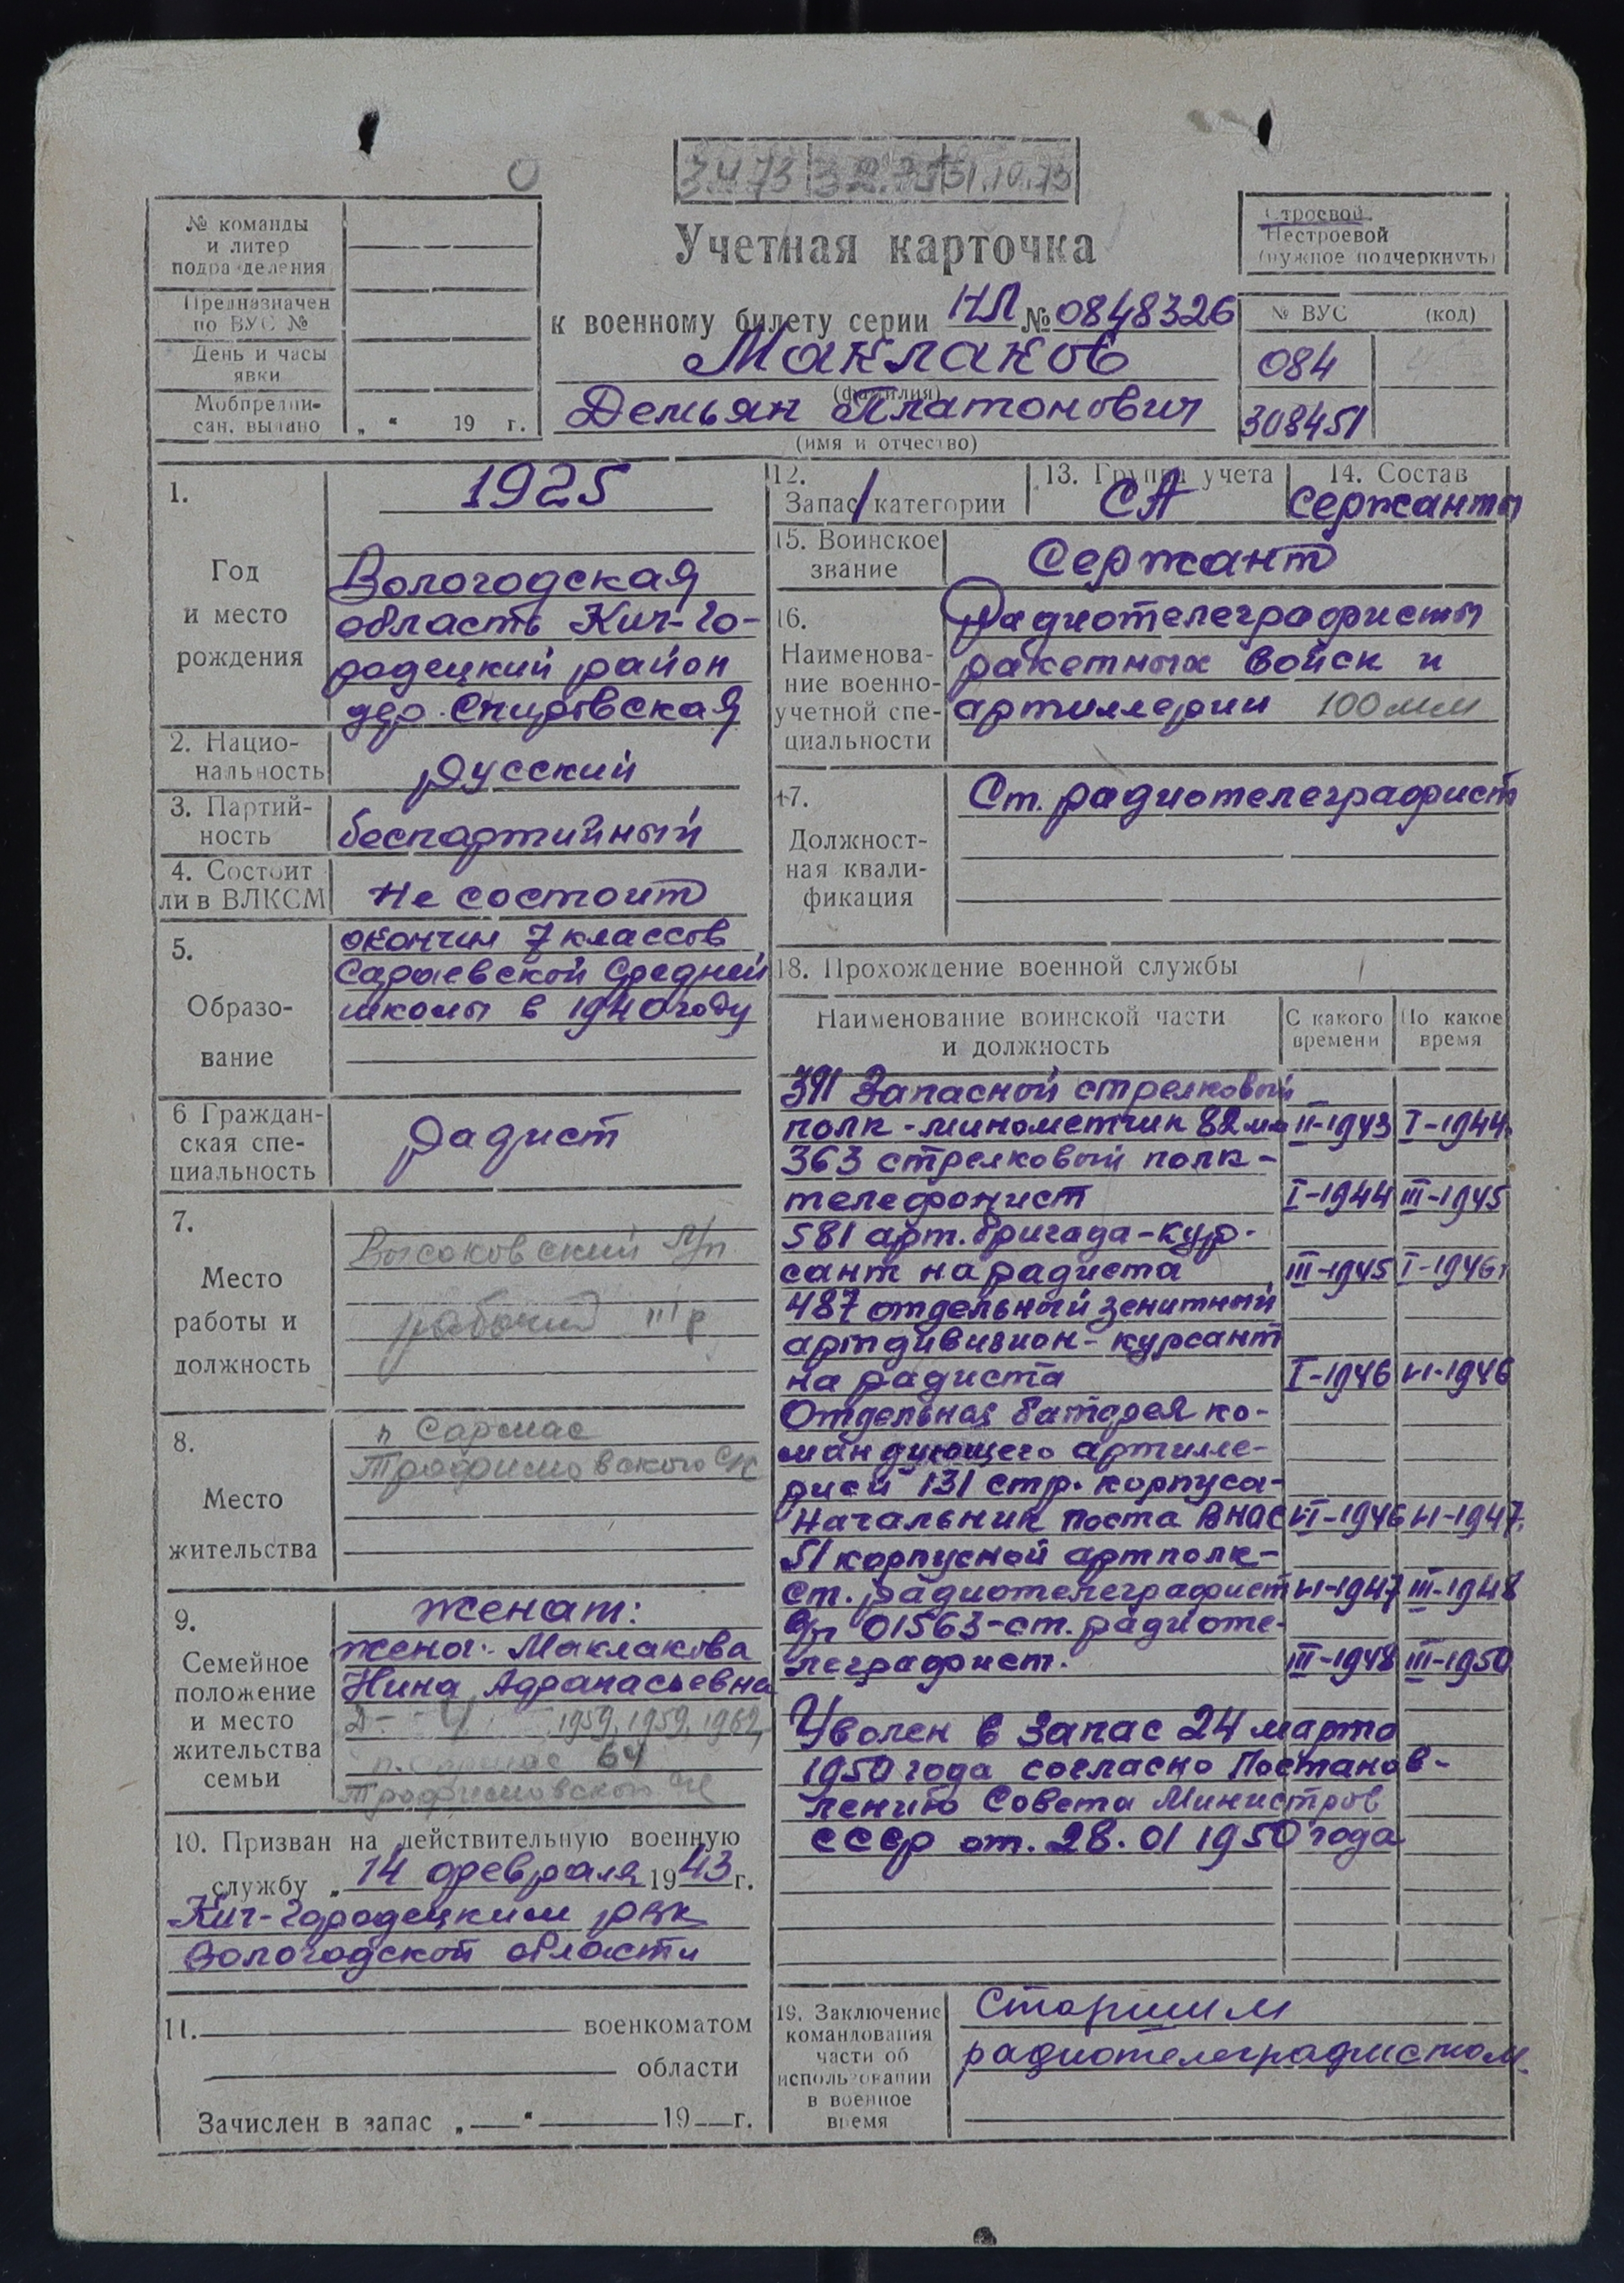 31.10.73
№ команды
и литер
подразделения
Предназначен
по ВУС №
День и часы
явки
Мобпредпи-
сан. выдано „ “ 19 г.
Учетная карточка
к военному билету серии НЛ № 0848326
Маклаков
(фамилия)
Демьян Платонович
(имя и отчество)
Строевой
Нестроевой
(нужное подчеркнуть)
№ ВУС (код)
084
308451
1.
Год
и место
рождения
1925
Вологодская
область Кич-Го-
родецкий район
дер. Спировская
2. Нацио-
нальность
русский
3. Партий-
ность
беспартийный
4. Состоит
ли в ВЛКСМ
Не состоит
5.
Образо-
вание
окончил 7 классов
Сараевской Средней
школы в 1940 году
6 Граждан-
ская спе-
циальность
Радист
7.
Место
работы и
должность
Высоковский л/п
рабочий
8.
Место
жительства
п Сармас
Трофимовского с/с
9.
Семейное
положение
и место
жительства
семьи
Женат:
жена: Маклакова
Нина Афанасьевна
1959, 1959, 1962,
п. Сармас 64
Трофимовского
10. Призван на действительную военную
службу „14 февраля 1943 г.
Кич-Городецким рвк
Вологодской области
11. военкоматом
области
Зачислен в запас „ — “ — 19 — г.
12.
Запас 1 категории
13. Группа учета
СА
14. Состав
Сержанты
15. Воинское
звание
Сержант
16.
Наименова-
ние военно-
учетной спе-
циальности
Радиотелеграфисты
ракетных войск и
артиллерии 100 мм
17.
Должност-
ная квали-
фикация
Ст. радиотелеграфист
18. Прохождение военной службы
Наименование воинской части
и должность
С какого
времени
По какое
время
391 Запасной стрелковый
полк - минометчик 82 мм II-1943 I-1944
363 стрелковый полк -
телефонист I-1944 III-1945
581 арт. бригада - кур-
сант на радиста III-1945 I-1946
487 отдельный зенитный
артдивизион - курсант
на радиста I-1946 VI-1946
Отдельная батарея ко-
мандующего артилле-
рией 131 стр. корпуса -
Начальник поста ВНОС VI-1946 VI-1947
51 корпусной артполк -
ст. радиотелеграфист VI-1947 III-1948
в/ч 01563 - ст. радиоте-
леграфист. III-1948 III-1950
Уволен в запас 24 марта
1950 года согласно Постанов-
лению Совета Министров
СССР от. 28. 01 1950 года
19. Заключение
командования
части об
использовании
в военное
время
Старшим
радиотелеграфистом.